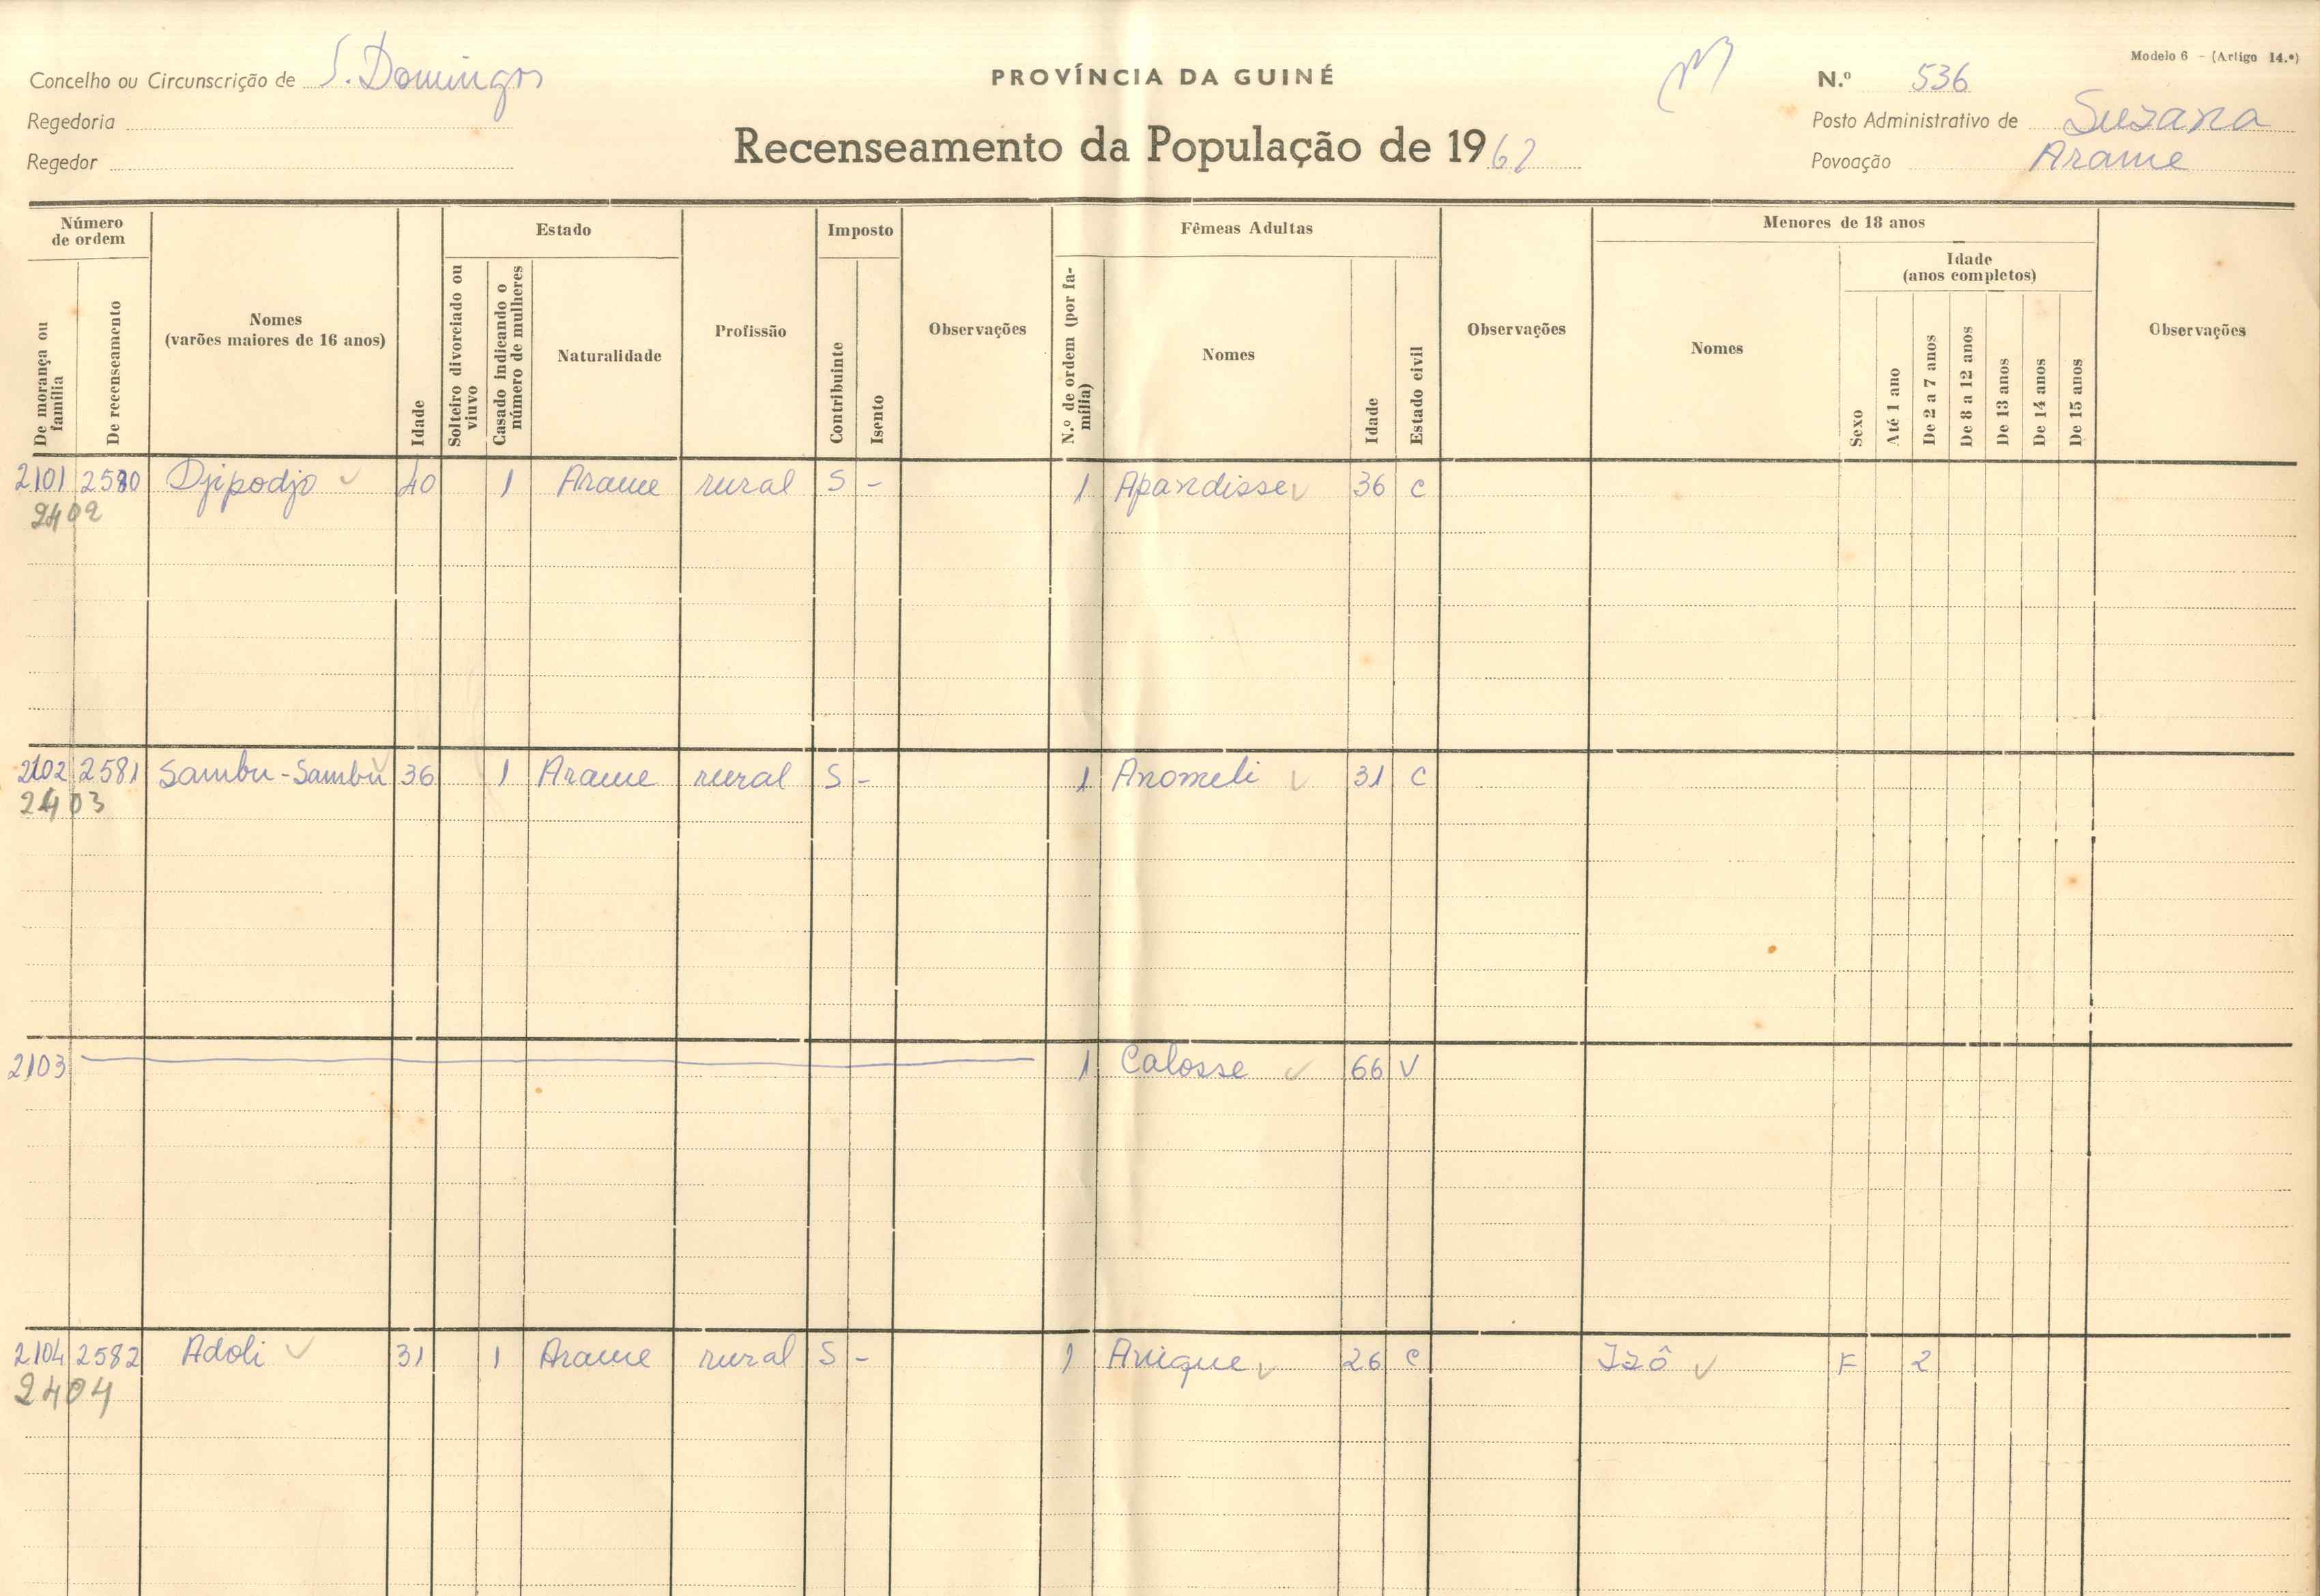 Modelo 6 - (Artigo 14.º)
Concelho ou Circunscrição de S. Domingos
PROVÍNCIA DA GUINÉ
N.º 536
Regedoria
Posto Administrativo de Suzana
Regedor
Recenseamento da População de 1962
Povoação Arame
Número de ordem
De morança ou família
De recenseamento
Nomes
(varões maiores de 16 anos)
Idade
Estado
Solteiro divorciado ou viuvo
Casado indicando o número de mulheres
Naturalidade
Profissão
Imposto
Contribuinte
Isento
Observações
Fêmeas Adultas
N.º de ordem (por família)
Nomes
Idade
Estado civil
Observações
Menores de 18 anos
Nomes
Sexo
Idade
(anos completos)
Até 1 ano
De 2 a 7 anos
De 8 a 12 anos
De 13 anos
De 14 anos
De 15 anos
Observações
2101 2580 Djipodjo 40 1 Arame rural S - 1 Apandisse 36 C
2402
2102 2581 Sambu-Sambu 36 1 Arame rural S - 1 Anomeli 31 C
2403
2103 1 Calosse 66 V
2104 2582 Adoli 31 1 Arame rural S - 1 Anique 26 C Izô F 2
2404